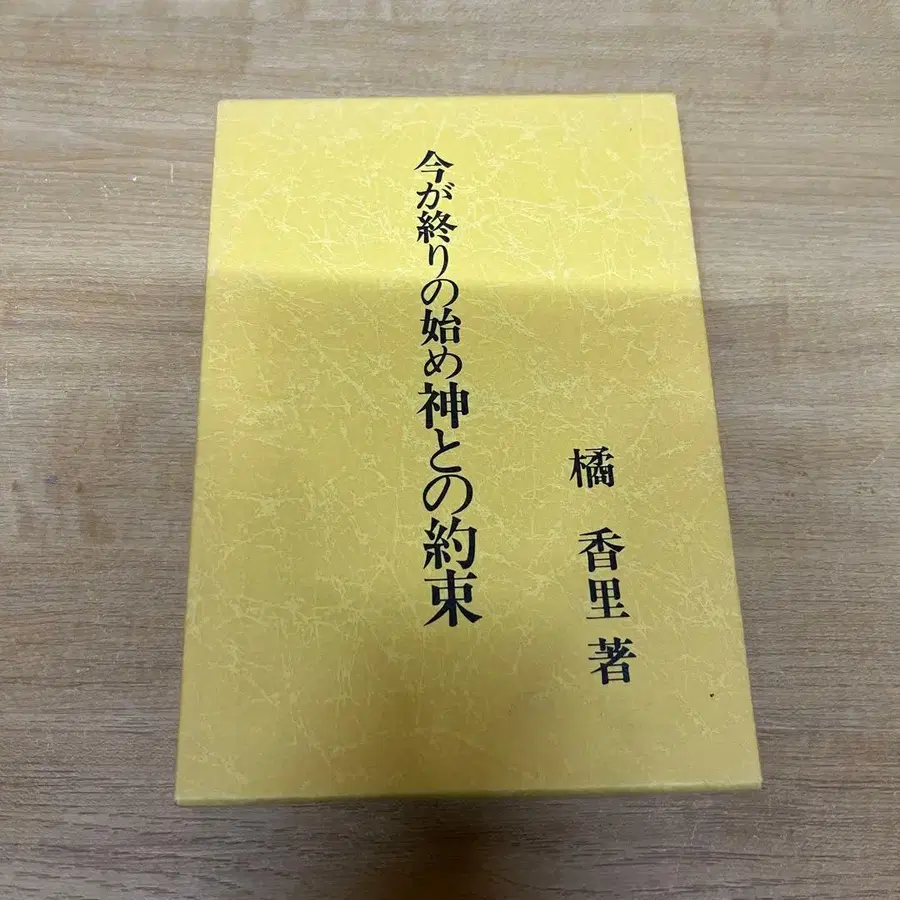 今が終りの始め神との約束
橘 香里 著